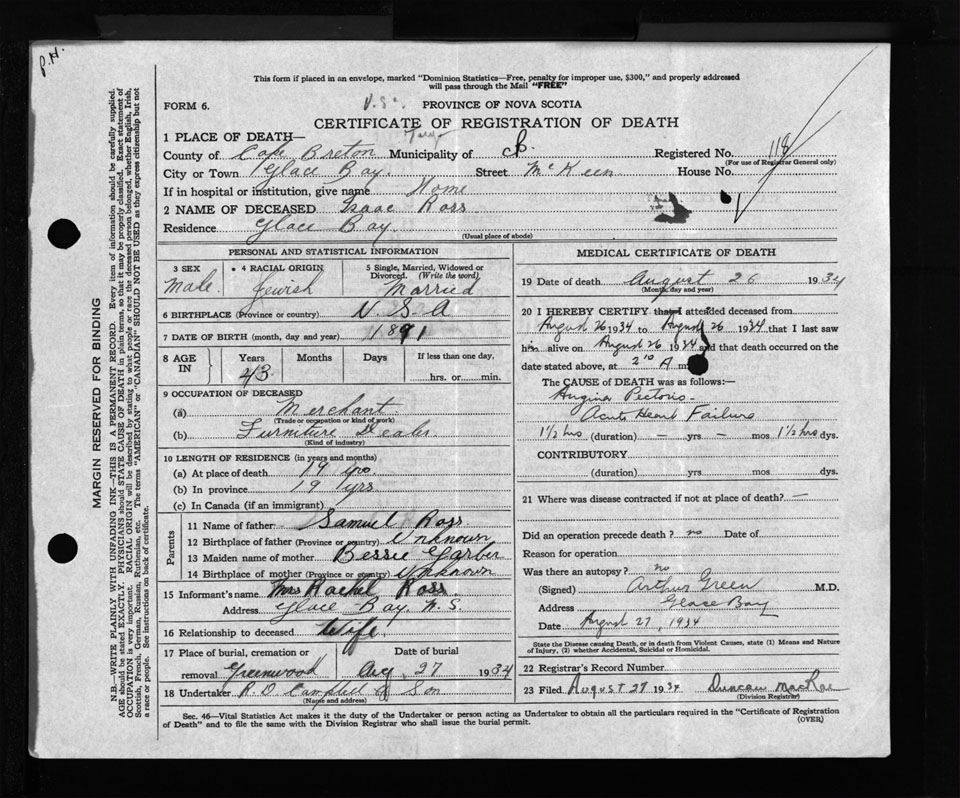 P.H.
This form if placed in an envelope, marked "Dominion Statistics—Free, penalty for improper use, $300," and properly addressed
will pass through the Mail "FREE"
FORM 6.
PROVINCE OF NOVA SCOTIA
CERTIFICATE OF REGISTRATION OF DEATH
1 PLACE OF DEATH—
County of Cape Breton Municipality of C.B. Registered No. 118
(For use of Registrar General only)
City or Town Glace Bay Street McKeen House No.
If in hospital or institution, give name Home
2 NAME OF DECEASED Isaac Ross
Residence Glace Bay
(Usual place of abode)
PERSONAL AND STATISTICAL INFORMATION
3 SEX
Male
4 RACIAL ORIGIN
Jewish
5 Single, Married, Widowed or
Divorced. (Write the word)
Married
6 BIRTHPLACE (Province or country) U.S.A
7 DATE OF BIRTH (month, day and year) 1891
8 AGE
IN
Years
43
Months
Days
If less than one day,
hrs. or min.
9 OCCUPATION OF DECEASED
(a) Merchant
(Trade or occupation or kind of work)
(b) Furniture Dealer
(Kind of industry)
10 LENGTH OF RESIDENCE (in years and months)
(a) At place of death 19 yrs
(b) In province 19 yrs
(c) In Canada (if an immigrant)
Parents
11 Name of father Samuel Ross
12 Birthplace of father (Province or country) Unknown
13 Maiden name of mother Bessie Garber
14 Birthplace of mother (Province or country) Unknown
15 Informant's name Mrs Rachel Ross
Address Glace Bay. N.S.
16 Relationship to deceased Wife
17 Place of burial, cremation or
removal Greenwood
Date of burial
Aug 27 1934
18 Undertaker R.D. Campbell & Son
(Name and address)
MEDICAL CERTIFICATE OF DEATH
19 Date of death August 26 1934
(Month, day and year)
20 I HEREBY CERTIFY that I attended deceased from
August 26 1934 to August 26 1934 that I last saw
him alive on August 26 1934 and that death occurred on the
date stated above, at 2 10 A m.
The CAUSE OF DEATH was as follows:—
Angina Pectoris
Acute Heart Failure
1 1/2 hrs (duration) — yrs — mos 1 1/2 hrs dys.
CONTRIBUTORY
(duration) yrs mos dys.
21 Where was disease contracted if not at place of death? —
Did an operation precede death? no Date of
Reason for operation
Was there an autopsy? no
(Signed) Arthur Green M.D.
Address Glace Bay
Date August 27, 1934
State the Disease causing Death, or in death from Violent Causes, state (1) Means and Nature
of Injury, (2) whether Accidental, Suicidal or Homicidal.
22 Registrar's Record Number
23 Filed August 27 1934 Duncan MacRae
(Division Registrar)
Sec. 46—Vital Statistics Act makes it the duty of the Undertaker or person acting as Undertaker to obtain all the particulars required in the "Certificate of Registration
of Death" and to file the same with the Division Registrar who shall issue the burial permit.
(OVER)
MARGIN RESERVED FOR BINDING
N.B.—WRITE PLAINLY WITH UNFADING INK—THIS IS A PERMANENT RECORD. Every item of information should be carefully supplied.
AGE should be stated EXACTLY. PHYSICIANS should STATE CAUSE OF DEATH in plain terms, so that it may be properly classified. Exact statement of
OCCUPATION is very important. RACIAL ORIGIN will be described by stating to what people or race the deceased person belonged, whether English, Irish,
Scottish, French, German, Russian, Ruthenian, etc. The terms "AMERICAN" or "CANADIAN" SHOULD NOT BE USED as they express citizenship but not
a race or people. See instructions on back of certificate.